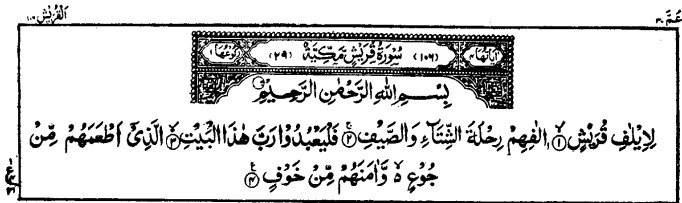 عَمَّ ٣٠
اَلْقُرَيْش ١٠٦
اٰيَاتُهَا ٤ (١٠٦) سُوْرَةُ قُرَيْشٍ مَكِّيَّةٌ (٢٩) رُكُوْعُهَا ١
بِسْمِ اللهِ الرَّحْمٰنِ الرَّحِيْمِ
لِاِيْلٰفِ قُرَيْشٍ ۙ﴿١﴾ اٖلٰفِهِمْ رِحْلَةَ الشِّتَآءِ وَالصَّيْفِ ۚ﴿٢﴾ فَلْيَعْبُدُوْا رَبَّ هٰذَا الْبَيْتِ ۙ﴿٣﴾ الَّذِيْۤ اَطْعَمَهُمْ مِّنْ
جُوْعٍ ۙ۬ وَّاٰمَنَهُمْ مِّنْ خَوْفٍ ۧ﴿٤﴾